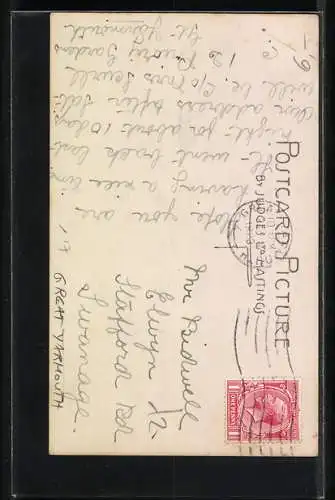 POSTCARD PICTURE
BY JUDGES LTD HASTINGS
Hope you are
having a nice time
went back last
night for about 10 days
Our address after Sat:
will be. C/o Mrs Sewell
Gardens
Gt Yarmouth
Mr Kidwell
Elwyn
Stafford Rd
Swanage.
GREAT YARMOUTH
ONE PENNY